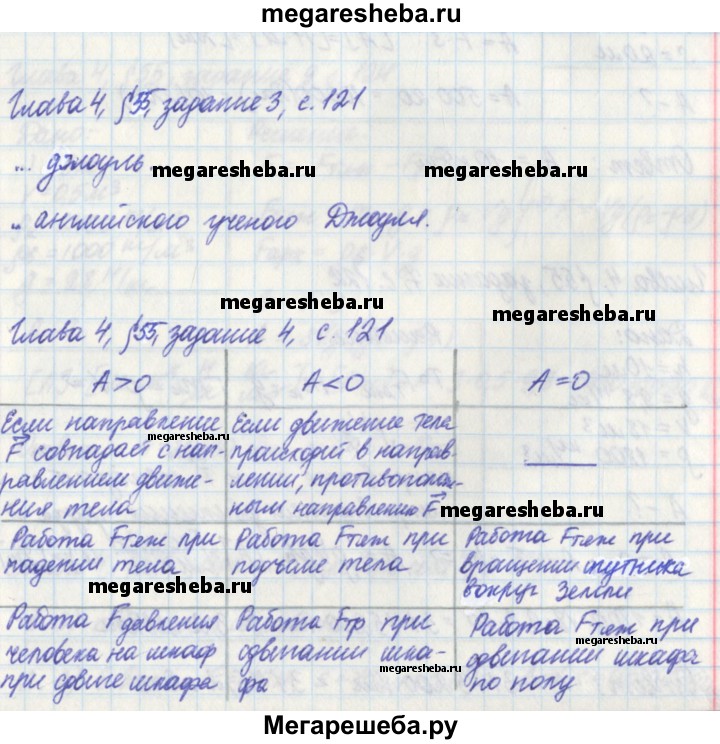 megaresheba.ru
Глава 4, §55, задание 3, с. 121
... джоуль ...
megaresheba.ru
megaresheba.ru
.. английского ученого Джоуля.
megaresheba.ru
Глава 4, §55, задание 4, с. 121
A>0 A<0 A=0
Если направление
F совпадает с нап-
равлением движе-
ния тела
Если движение тела
происходит в направ-
лении, противополож-
ным направлению F
megaresheba.ru
megaresheba.ru
Работа Fтяж при
падении тела
Работа Fтяж при
подъеме тела
Работа Fтяж при
вращении спутника
вокруг Земли
megaresheba.ru
Работа Fдавления
человека на шкаф
при сдвиге шкафа
Работа Fтр при
сдвигании шка-
фа
Работа Fтяж при
сдвигании шкафа
по полу
megaresheba.ru
megaresheba.ru
Мегарешеба.ру